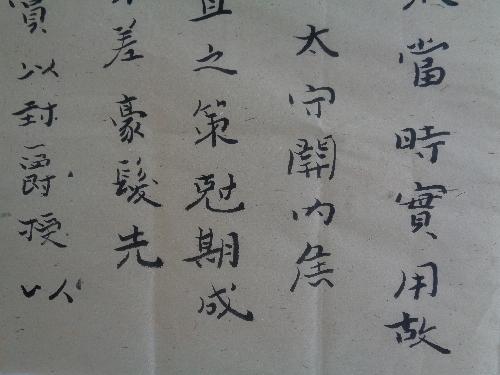 當時實用故
太守關内侯
直之策尅期成
差豪髮先
賞以封爵授以